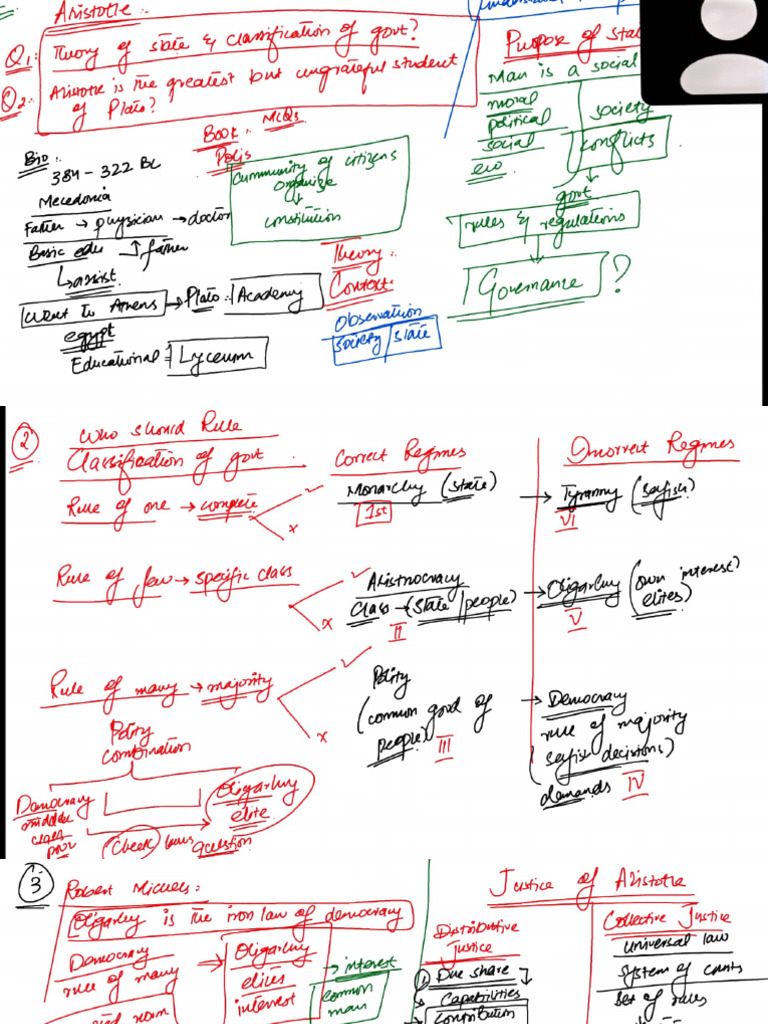 Aristotle:
Q1: Theory of state & classification of govt?
Q2: Aristotle is the greatest but ungrateful student
of Plato?
Bio:
384-322 BC
Mecedonia
Father → physician → doctor
Basic edu father
assist
Went to Athens → Plato: Academy
egypt
Educational = Lyceum
Book: MCQs
Polis
Cummunity of citizens
organize
constitution
Theory:
Context:
Observation
society/state
Purpose of Stat
Man is a social
moral
political
social
eco
society
conflicts
govt
rules & regulations
Governance ?
2
Who should Rule
Classification of govt.
Correct Regimes
Incorrect Regmes
Rule of one → complete
✓
x
Monarchy (state)
1st
→ Tyranny (selfish)
VI
Rule of few → specific class
✓
x
Aristrocracy
Class → (state/people)
II
→ Oligarchy (own interest)
elites)
V
Rule of many → majority
✓
x
Polity
(common good of
people)
III
→ Democracy
rule of majority
(selfish decisions)
demands
IV
Polity
combination
Democracy
middle
class
poor
Oligarchy
elite
(check) laws question
3
Robert Michels:
Oligarchy is the iron law of democracy
Democracy
rule of many
⇒ Oligarchy
elites
interest
→ interest
common
man
Justice of Aristotle
Distributive
Justice
1 Due share
Capabilities
Contribution
Collective Justice
universal law
system of courts
set of rules